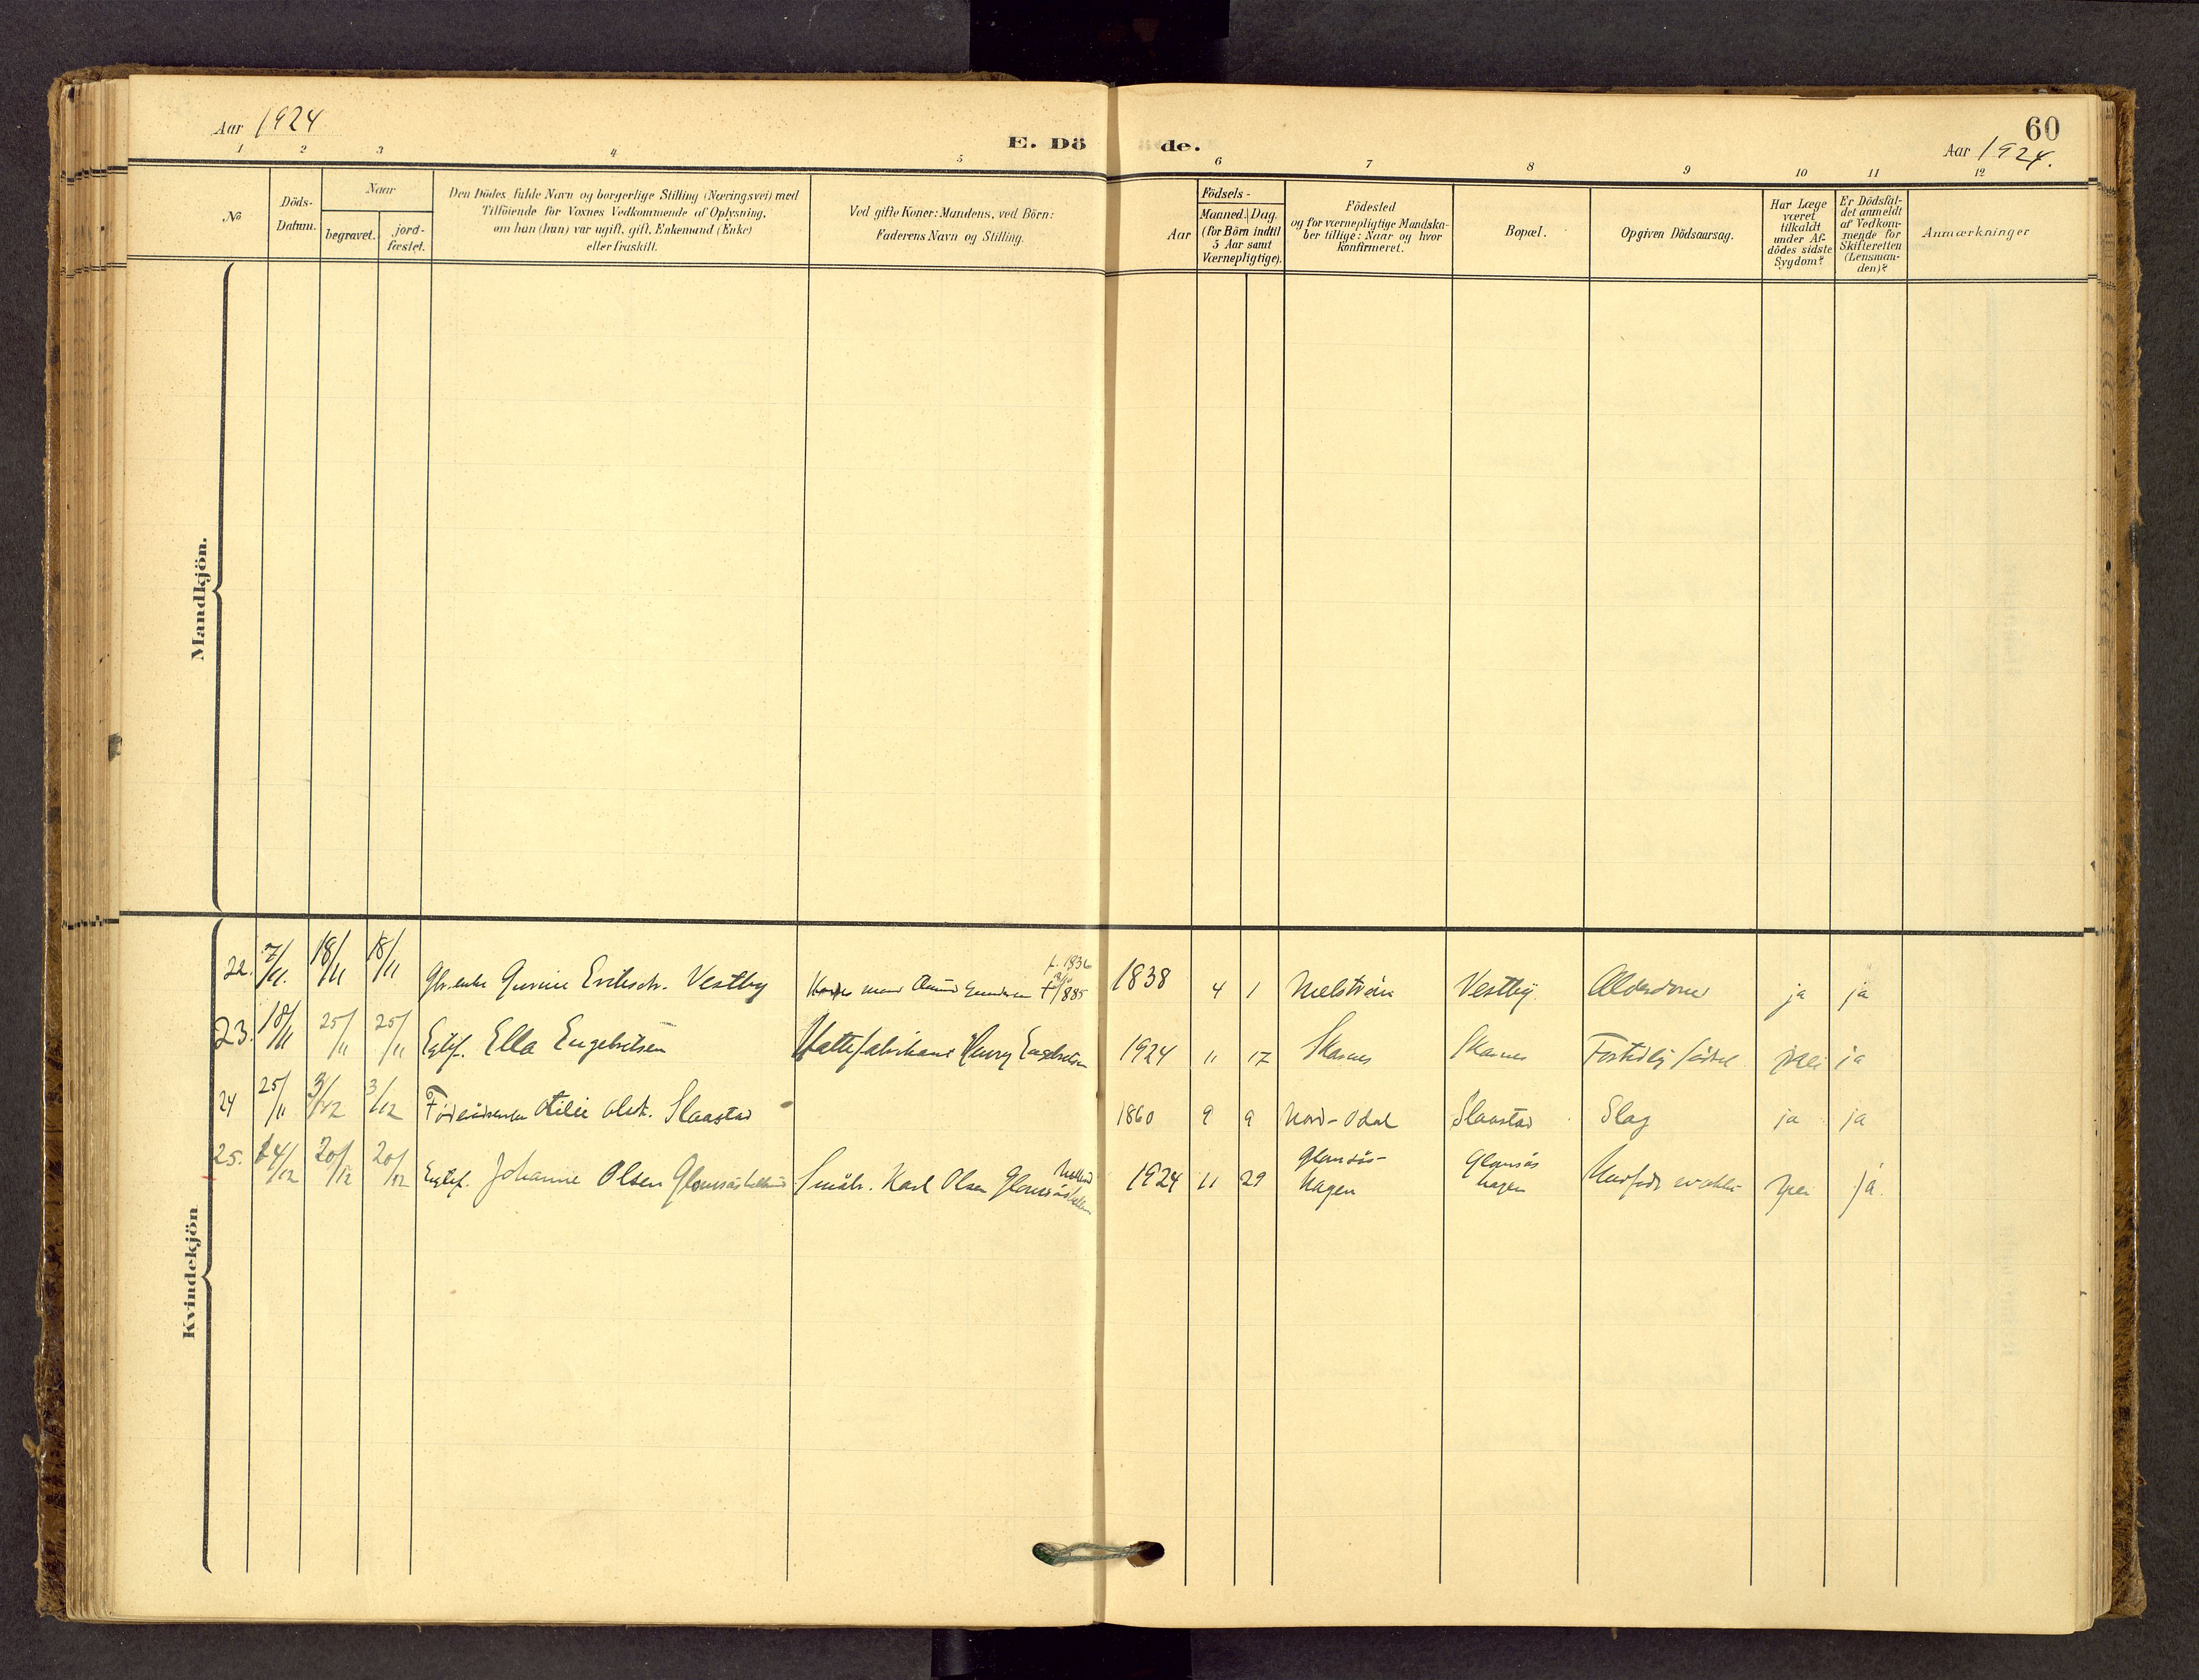 Aar 1924
E. Dö
de.
60
Aar 1924.
1 2 3 4 5 6 7 8 9 10 11 12
No
Döds-
Datum.
Naar
begravet.
jord-
fæstet.
Den Dödes fulde Navn og borgerlige Stilling (Næringsvei) med
Tilföiende for Voxnes Vedkommende af Oplysning,
om han (hun) var ugift, gift, Enkemand (Enke)
eller fraskilt.
Ved gifte Koner: Mandens, ved Börn:
Faderens Navn og Stilling.
Aar
Födsels-
Maaned. Dag.
(for Börn indtil
5 Aar samt
Værnepligtige).
Födested
og for værnepligtige Mandska-
ber tillige: Naar og hvor
konfirmeret.
Bopæl.
Opgiven Dödsaarsag.
Har Læge
været
tilkaldt
under Af-
dödes sidste
Sygdom?
Er Dödsfal-
det anmeldt
af Vedkom-
mende for
Skifteretten
(Lensman-
den)?
Anmærkninger
Mandkjön.
Kvindekjön
22. 7/11. 18/11 18/11 Vestby 1838 4 1 Vestby ja ja
23. 18/11 25/11 25/11 Ella Engebretsen Henry Engebretsen 1924 11 17 Skarnes Skarnes ja
24 25/11 3/12 3/12 Otilie Slaastad 1860 9 9 Nord-Odal Slaastad Slag ja ja
25. 14/12 20/12 20/12 Johanne Olsen Karl Olsen 1924 11 29 Glomsås-
hagen Glomsås
hagen nei ja.